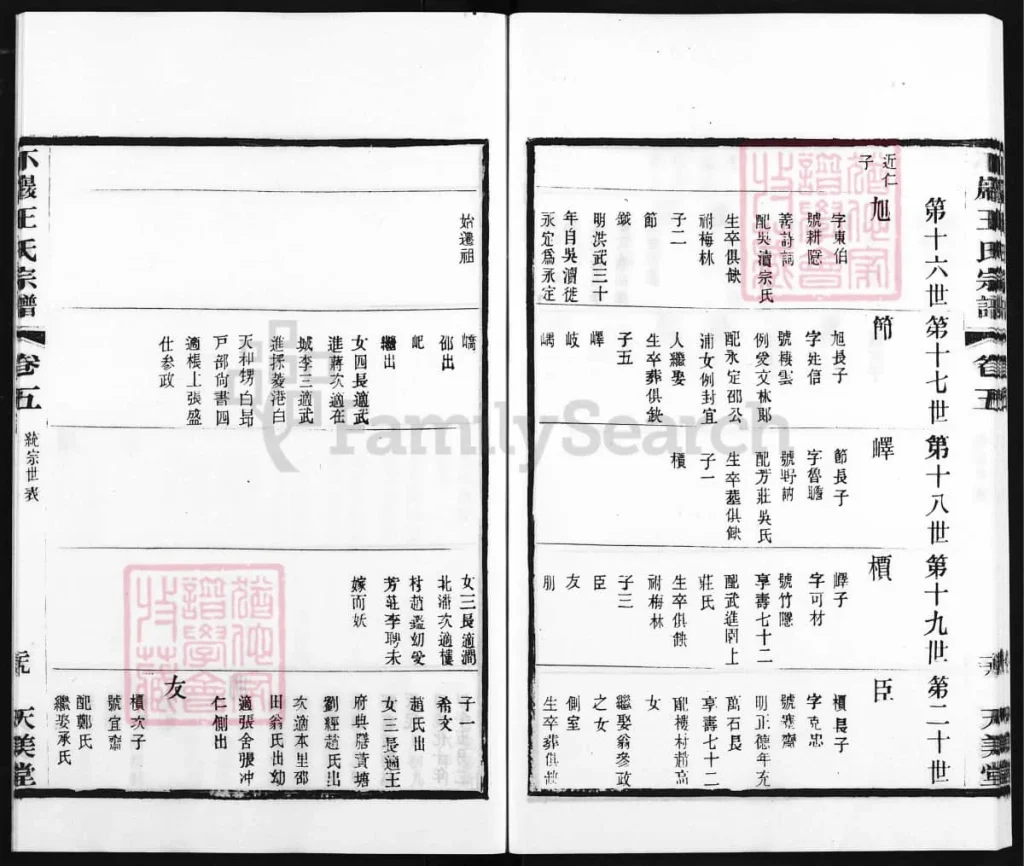 王氏宗譜
卷五
天美堂
第十六世
第十七世
第十八世
第十九世
第二十世
近仁
子
旭
字東伯
號耕隱
善詩詞
配吳瀆宗氏
生卒俱缺
祔梅林
子二
節
明洪武三十
年自吳瀆徙
永定爲永定
始遷祖
節
旭長子
字姓信
號樓雲
例受文林郎
配永定邵公
浦女例封宜
人繼娶
生卒葬俱缺
子五
嶧
岐
嵎
嶠
邵出
屺
繼出
女四長適武
進蔣次適在
城李三適武
進採菱港白
天和甥白昂
戸部尚書四
適棖上張盛
仕参政
嶧
節長子
字魯瞻
號野訥
配芳莊吳氏
生卒墓俱缺
子一
檟
檟
嶧子
字可材
號竹隱
享壽七十二
配武進圩上
莊氏
生卒俱缺
祔梅林
子三
臣
友
朋
女三長適澗
北潘次適樓
村趙鑑幼愛
芳莊李聘未
嫁而妖
臣
檟長子
字克忠
號齋
明正德年充
萬石長
享壽七十二
配樓村趙高
女
繼娶翁參政
之女
側室
生卒葬俱缺
子一
希文
趙氏出
女三長適王
府典膳黃塘
劉經趙氏出
次適本里邵
田翁氏出幼
適張舍張冲
仁側出
友
檟次子
號宜齋
配鄭氏
繼娶承氏
下𡑞王氏宗譜
卷五
統宗世表
天美堂
FamilySearch